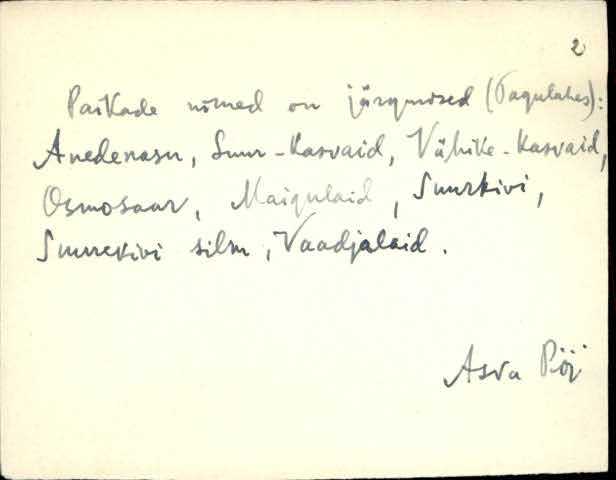 2
Paikade nimed on järgmised (Tagulahes):
Anedenasu, Suur-Kasvaid, Vähike-Kasvaid,
Osmosaar, Maigulaid, Suurkivi,
Suurekivi silm, Vaadjalaid.
Asva Pöi